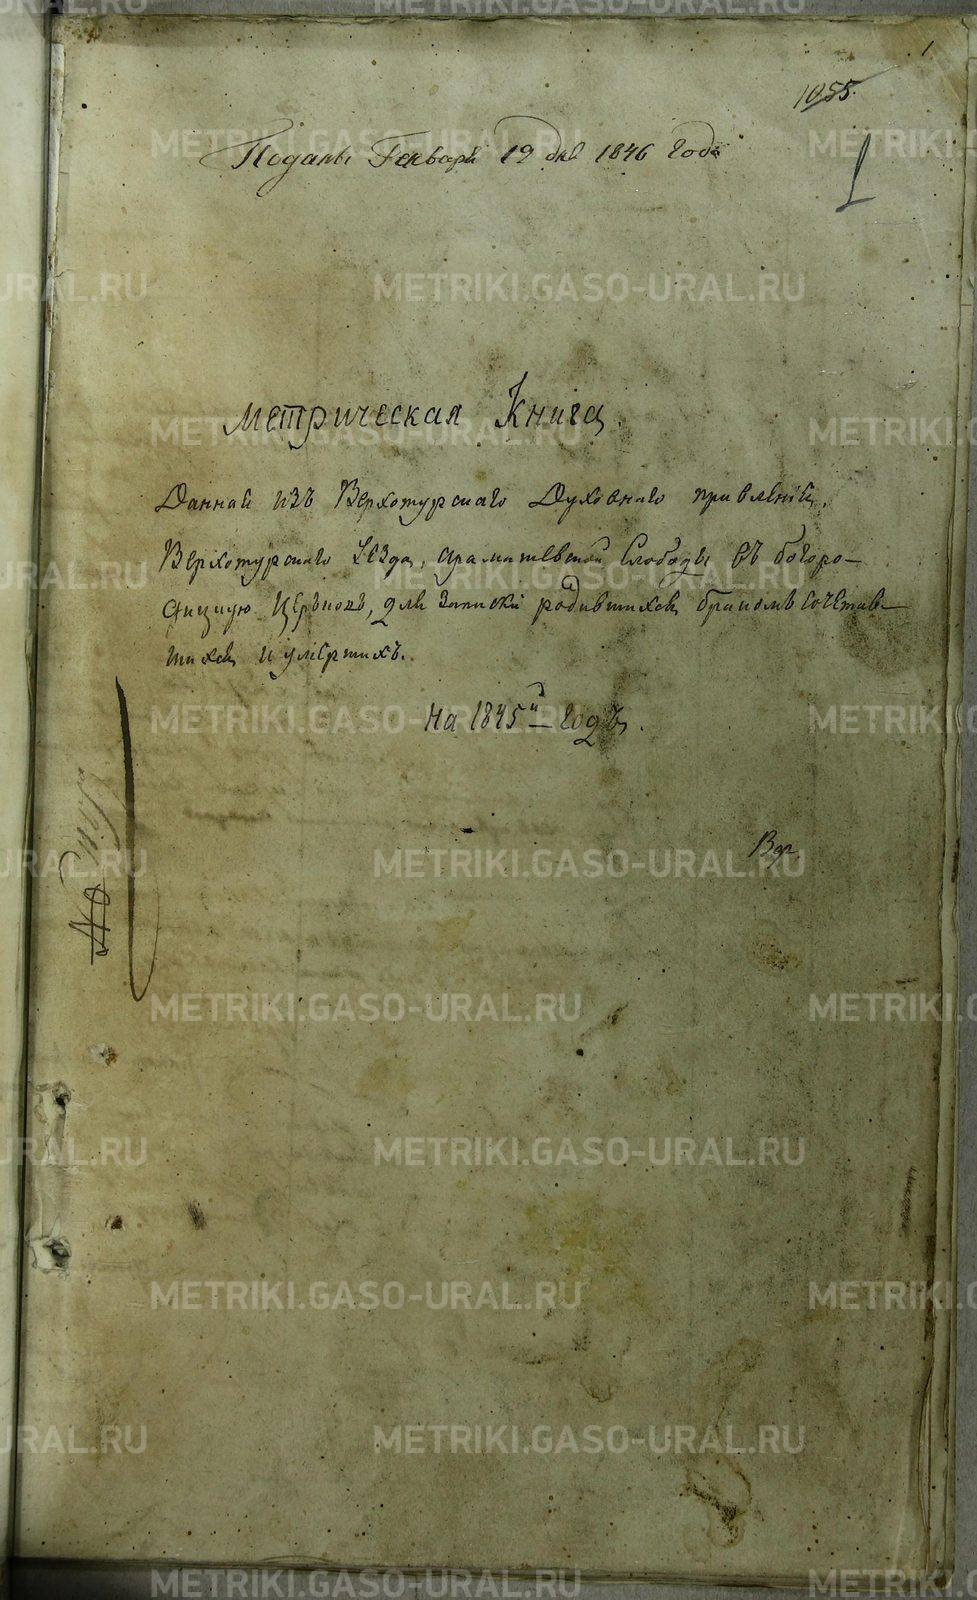 1
1055.
Поданы Генваря 19 дня 1846 года
1
Метрическая Книга.
Данная изъ Верхотурскаго Духовнаго правленія,
Верхотурскаго уезда, арамашевской Слободы въ богоро-
дицкую церьковь, для записки родившихся, бракомъ сочетав-
шихся и умершихъ.
На 1845й годъ.
METRIKI.GASO-URAL.RU